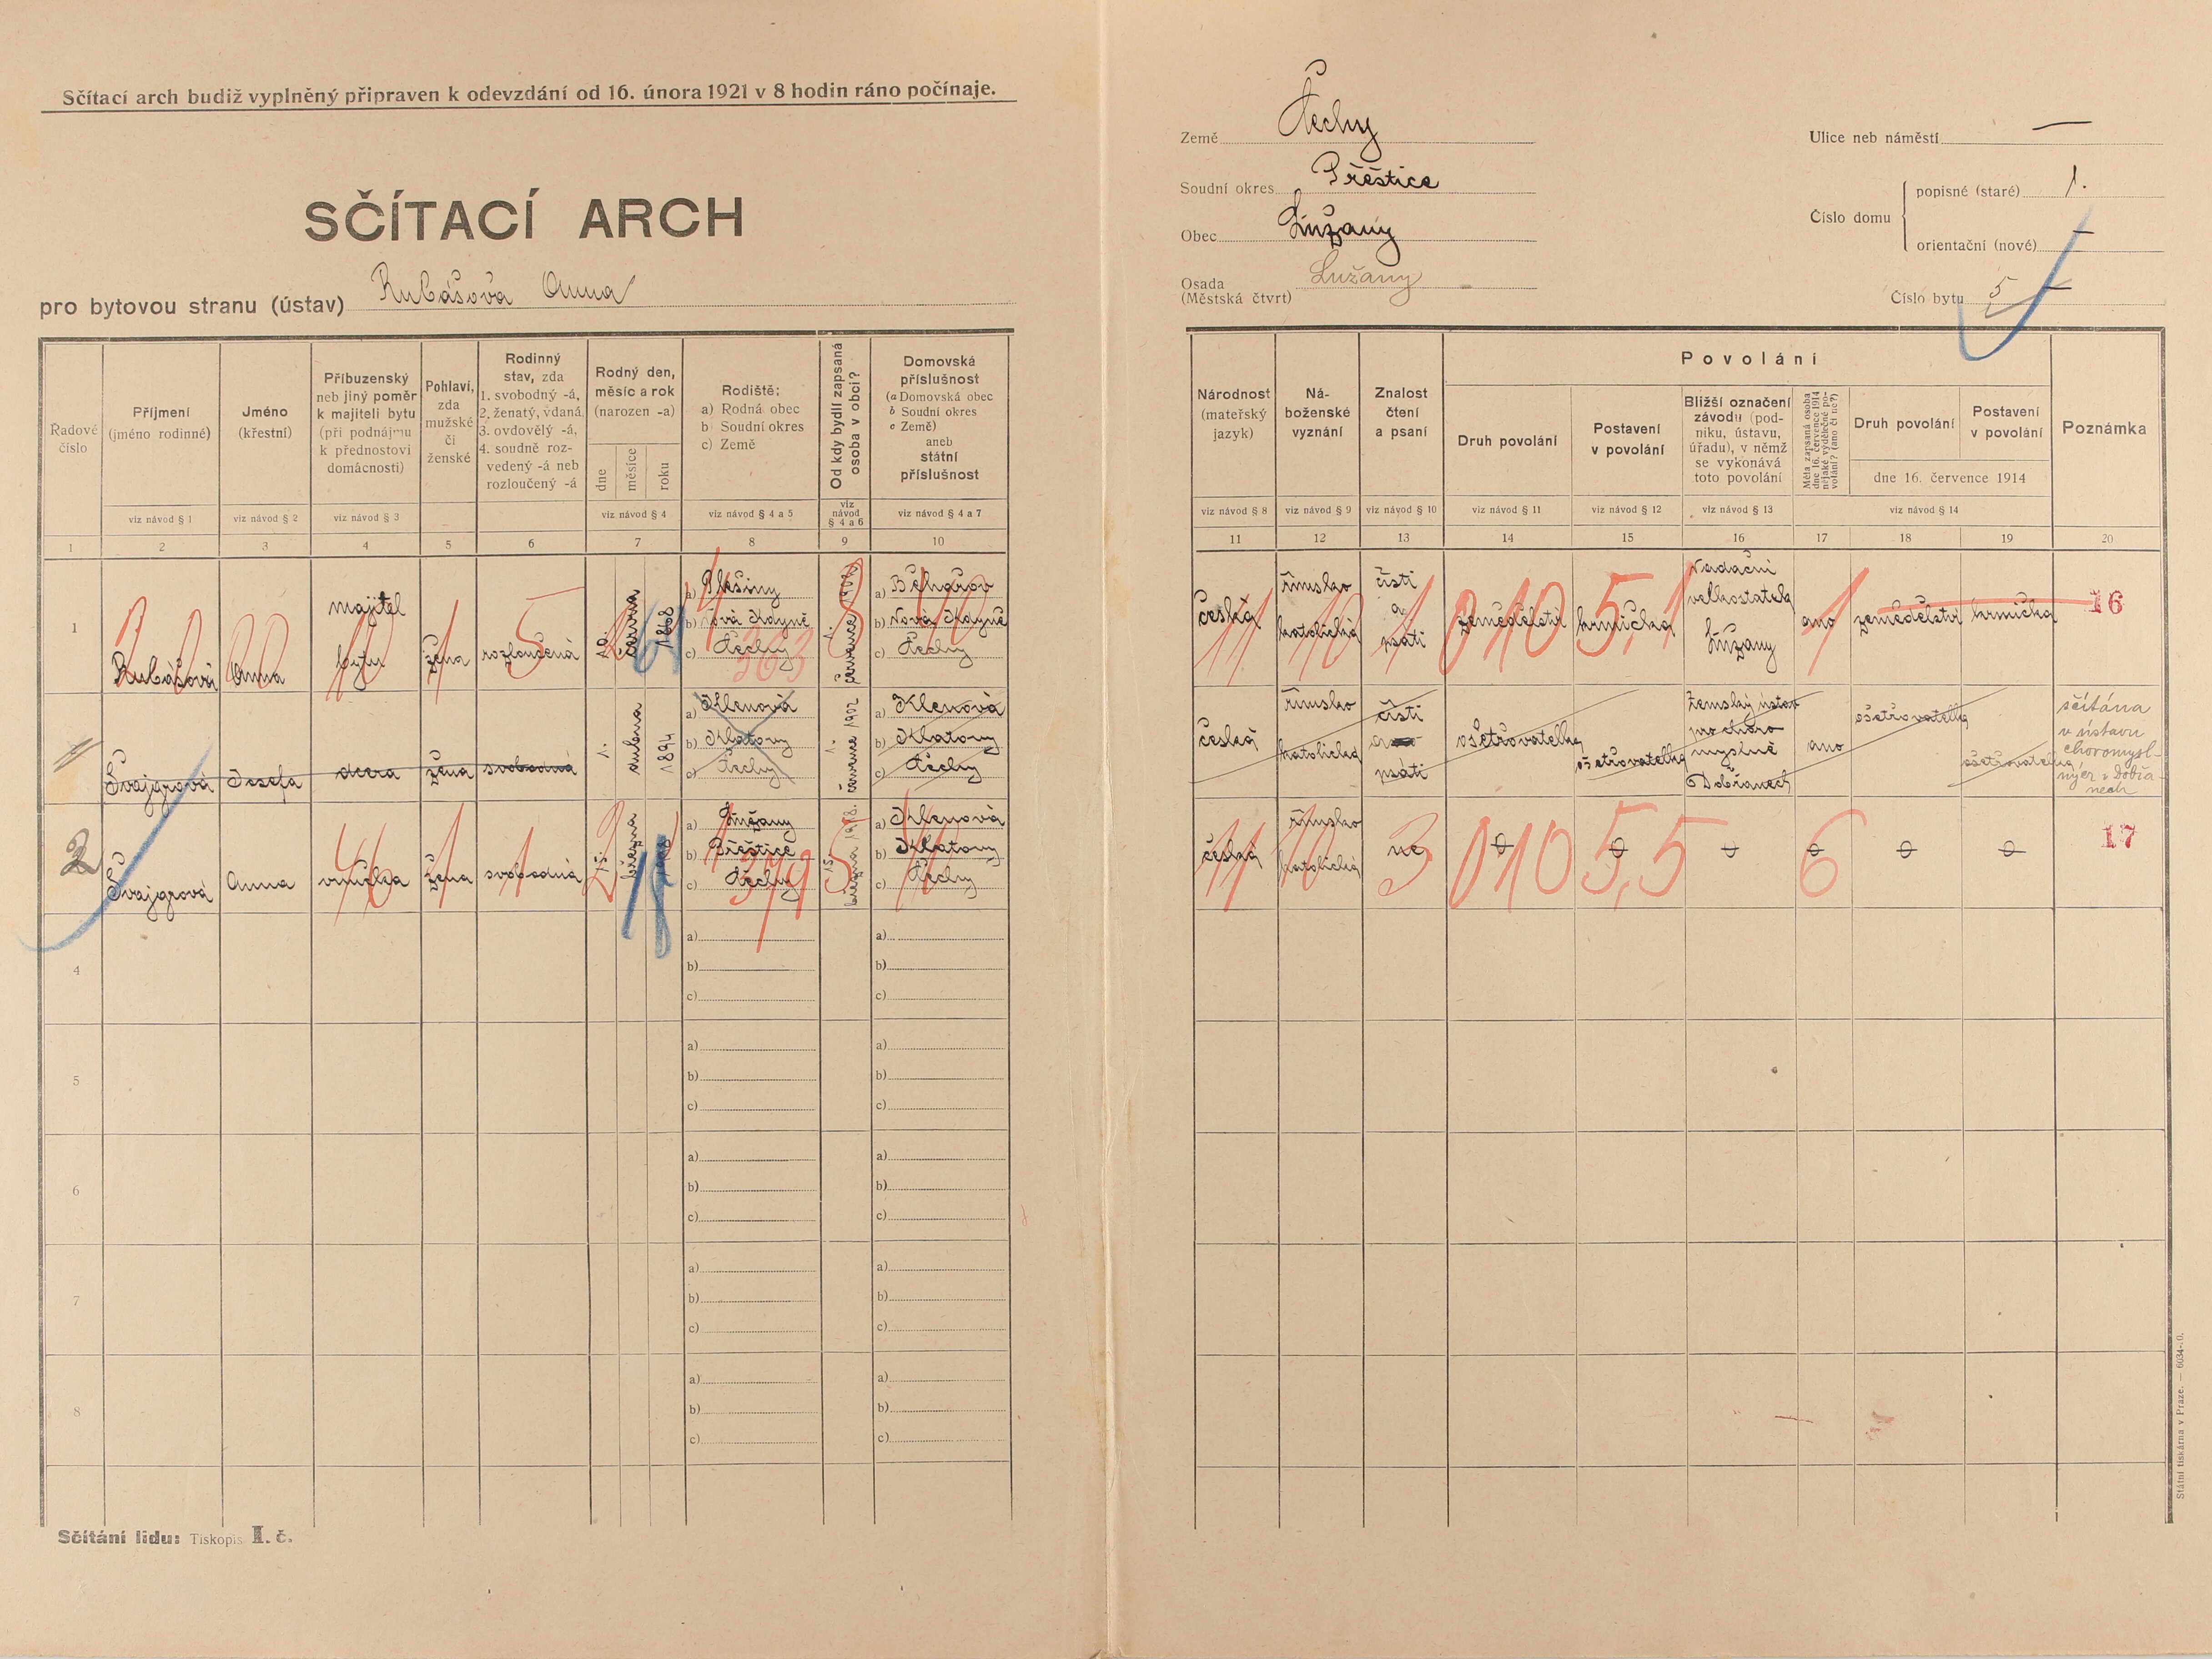 Sčítací arch budiž vyplněný připraven k odevzdání od 16. února 1921 v 8 hodin ráno počínaje.
SČÍTACÍ ARCH
pro bytovou stranu (ústav) Rubášová Anna
Země Čechy
Soudní okres Přeštice
Obec Lužany
Osada Lužany
(Městská čtvrt)
Ulice neb náměstí —
Číslo domu
popisné (staré) 1.
orientační (nové) —
Číslo bytu 5 —
Řadové číslo
Příjmení (jméno rodinné)
Jméno (křestní)
Příbuzenský neb jiný poměr k majiteli bytu (při podnájmu k přednostovi domácnosti)
Pohlaví, zda mužské či ženské
Rodinný stav, zda 1. svobodný -á, 2. ženatý, vdaná, 3. ovdovělý -á, 4. soudně rozvedený -á neb rozloučený -á
Rodný den, měsíc a rok (narozen -a)
dne měsíce roku
Rodiště:
a) Rodná obec
b) Soudní okres
c) Země
Od kdy bydlí zapsaná osoba v obci?
Domovská příslušnost
(a Domovská obec
b Soudní okres
c Země)
aneb státní příslušnost
viz návod § 1
viz návod § 2
viz návod § 3
viz návod § 4
viz návod § 4 a 5
viz návod § 4 a 6
viz návod § 4 a 7
1 2 3 4 5 6 7 8 9 10
Národnost (mateřský jazyk)
Náboženské vyznání
Znalost čtení a psaní
Povolání
Druh povolání
Postavení v povolání
Bližší označení závodu (podniku, ústavu, úřadu), v němž se vykonává toto povolání
Měla zapsaná osoba dne 16. července 1914 nějaké výdělečné povolání? (ano či ne?)
Druh povolání
Postavení v povolání
dne 16. července 1914
Poznámka
viz návod § 8
viz návod § 9
viz návod § 10
viz návod § 11
viz návod § 12
viz návod § 13
viz návod § 14
11 12 13 14 15 16 17 18 19 20
1
Rubášová
Anna
majitel
bytu
žena
rozloučená
června
1868
a) Plešiny
b) Nová Kdyně
c) Čechy
363
1. července
a) Běhařov
b) Nová Kdyně
c) Čechy
česká
římsko
katolická
čísti
a
psáti
zemědělství
krmička
010
5,1
Nadační
velkostatek
Lužany
ano
zemědělství
krmička
16
Švajgrová
Josefa
dcera
žena
svobodná
1.
dubna
1894
a) Klenová
b) Klatovy
c) Čechy
1. července 1902
a) Klenová
b) Klatovy
c) Čechy
česká
římsko
katolická
čísti
psáti
ošetřovatelka
ošetřovatelka
Zemský ústav
pro choro
myslné
v Dobřanech
ano
ošetřovatelka
ošetřovatelka
sčítána
v ústavu
choromysl-
ných v Dobřa-
nech
2
Švajgrová
Anna
vnučka
žena
svobodná
15.
března
a) Lužany
b) Přeštice
c) Čechy
379
15. března 1918.
a) Klenová
b) Klatovy
c) Čechy
česká
římsko
katolická
ne
3
010
5,5
6
17
4
a)
b)
c)
a)
b)
c)
5
a)
b)
c)
a)
b)
c)
6
a)
b)
c)
a)
b)
c)
7
a)
b)
c)
a)
b)
c)
8
a)
b)
c)
a)
b)
c)
Sčítání lidu: Tiskopis I. č.
Státní tiskárna v Praze. — 6034-:0.